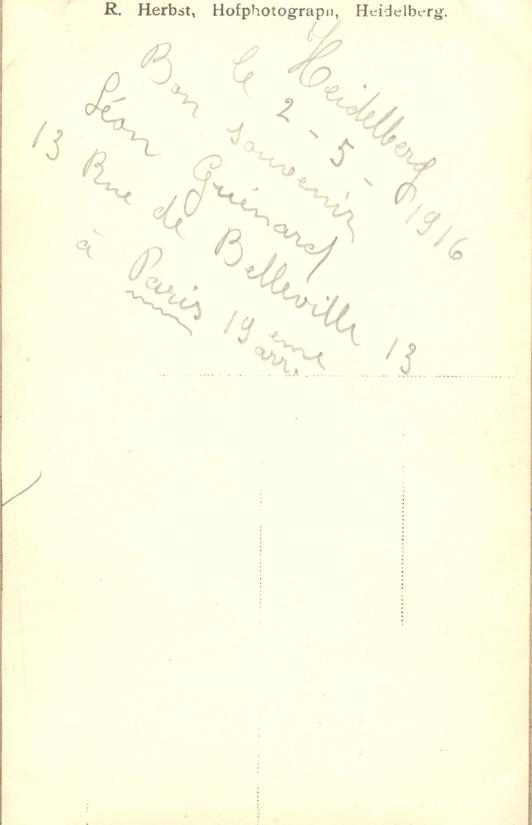 R. Herbst, Hofphotograph, Heidelberg.
Heidelberg
le 2-5-1916
Bon souvenir
Léon Guénard
13 Rue de Belleville 13
à Paris 19 eme
arr.